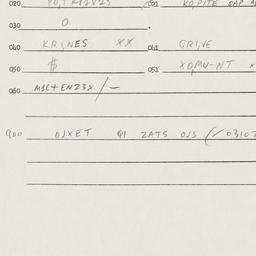 020 021
030 0
040 KRINES XX 041 GRINE
050 $ 051 XOMU-NT
060 MSC+ENZ3X/-
900 OJXET QI ZATS OJS (/03103